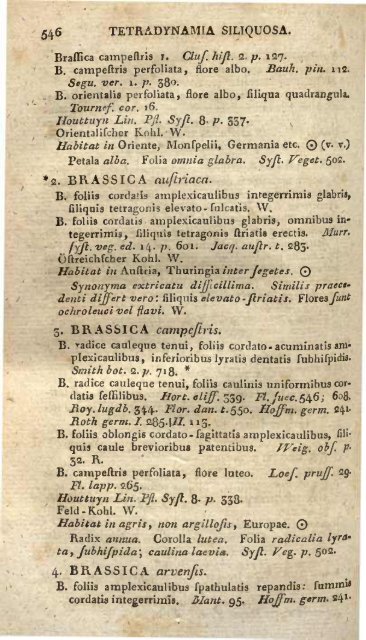 546 TETRADYNAMIA SILIQUOSA.
Braſſica campeſtris 1. Cluſ. hiſt. 2. p. 127.
B. campeſtris perfoliata, flore albo. Bauh. pin. 112.
Segu. ver. 1. p. 380.
B. orientalis perfoliata, flore albo, ſiliqua quadrangula.
Tournef. cor. 16.
Houttuyn Lin. Pfl. Syſt. 8. p. 337.
Orientaliſcher Kohl. W.
Habitat in Oriente, Monſpelii, Germania etc. ☉ (v. v.)
Petala alba. Folia omnia glabra. Syſt. Veget. 502.
*2. BRASSICA auſtriaca.
B. foliis cordatis amplexicaulibus integerrimis glabris,
ſiliquis tetragonis elevato-ſulcatis. W.
B. foliis cordatis amplexicaulibus glabris, omnibus in-
tegerrimis, ſiliquis tetragonis ſtriatis erectis. Murr.
ſyſt. veg. ed. 14. p. 601. Jacq. auſtr. t. 283.
Öſtreichſcher Kohl. W.
Habitat in Auſtria, Thuringia inter ſegetes. ☉
Synonyma extricatu difficillima. Similis praece-
denti differt vero: ſiliquis elevato-ſtriatis. Flores ſunt
ochroleuci vel flavi. W.
3. BRASSICA campeſtris.
B. radice cauleque tenui, foliis cordato-acuminatis am-
plexicaulibus, inferioribus lyratis dentatis ſubhiſpidis.
Smith bot. 2. p. 718. *
B. radice cauleque tenui, foliis caulinis uniformibus cor-
datis ſeſſilibus. Hort. cliff. 339. Fl. ſuec. 546; 608.
Roy. lugdb. 344. Flor. dan. t. 550. Hoffm. germ. 241.
Roth germ. I. 285. II. 113.
B. foliis oblongis cordato-ſagittatis amplexicaulibus, ſili-
quis caule brevioribus patentibus. Weig. obſ. p.
32. R.
B. campeſtris perfoliata, flore luteo. Loeſ. pruſſ. 29.
Fl. lapp. 265.
Houttuyn Lin. Pfl. Syſt. 8. p. 338.
Feld-Kohl. W.
Habitat in agris, non argilloſis, Europae. ☉
Radix annua. Corolla lutea. Folia radicalia lyra-
ta, ſubhiſpida; caulina laevia. Syſt. Veg. p. 502.
4. BRASSICA arvenſis.
B. foliis amplexicaulibus ſpathulatis repandis: ſummis
cordatis integerrimis. Mant. 95. Hoffm. germ. 241.